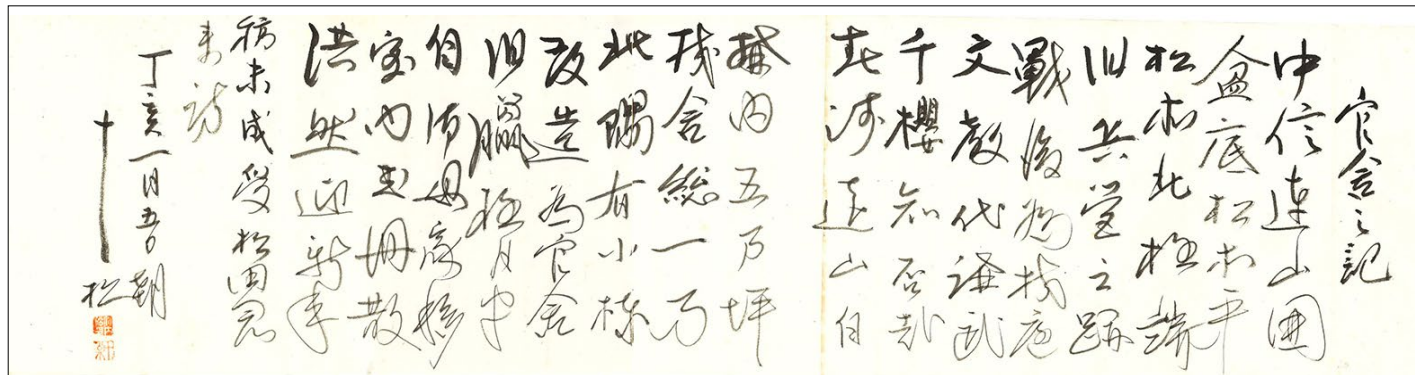 官舎之記
中信連山囲
盆底松本平
松本北極端
旧兵営之跡
戦後為校庭
文教代講武
千櫻知否哉
春浅遠山白
構内五万坪
校舎総一万
此隅有小棟
改造為官舎
旧臘極月中
自母家移
室内書冊散
洪然迎新年
稿未成受松田君
来訪
丁亥一月五朝
松